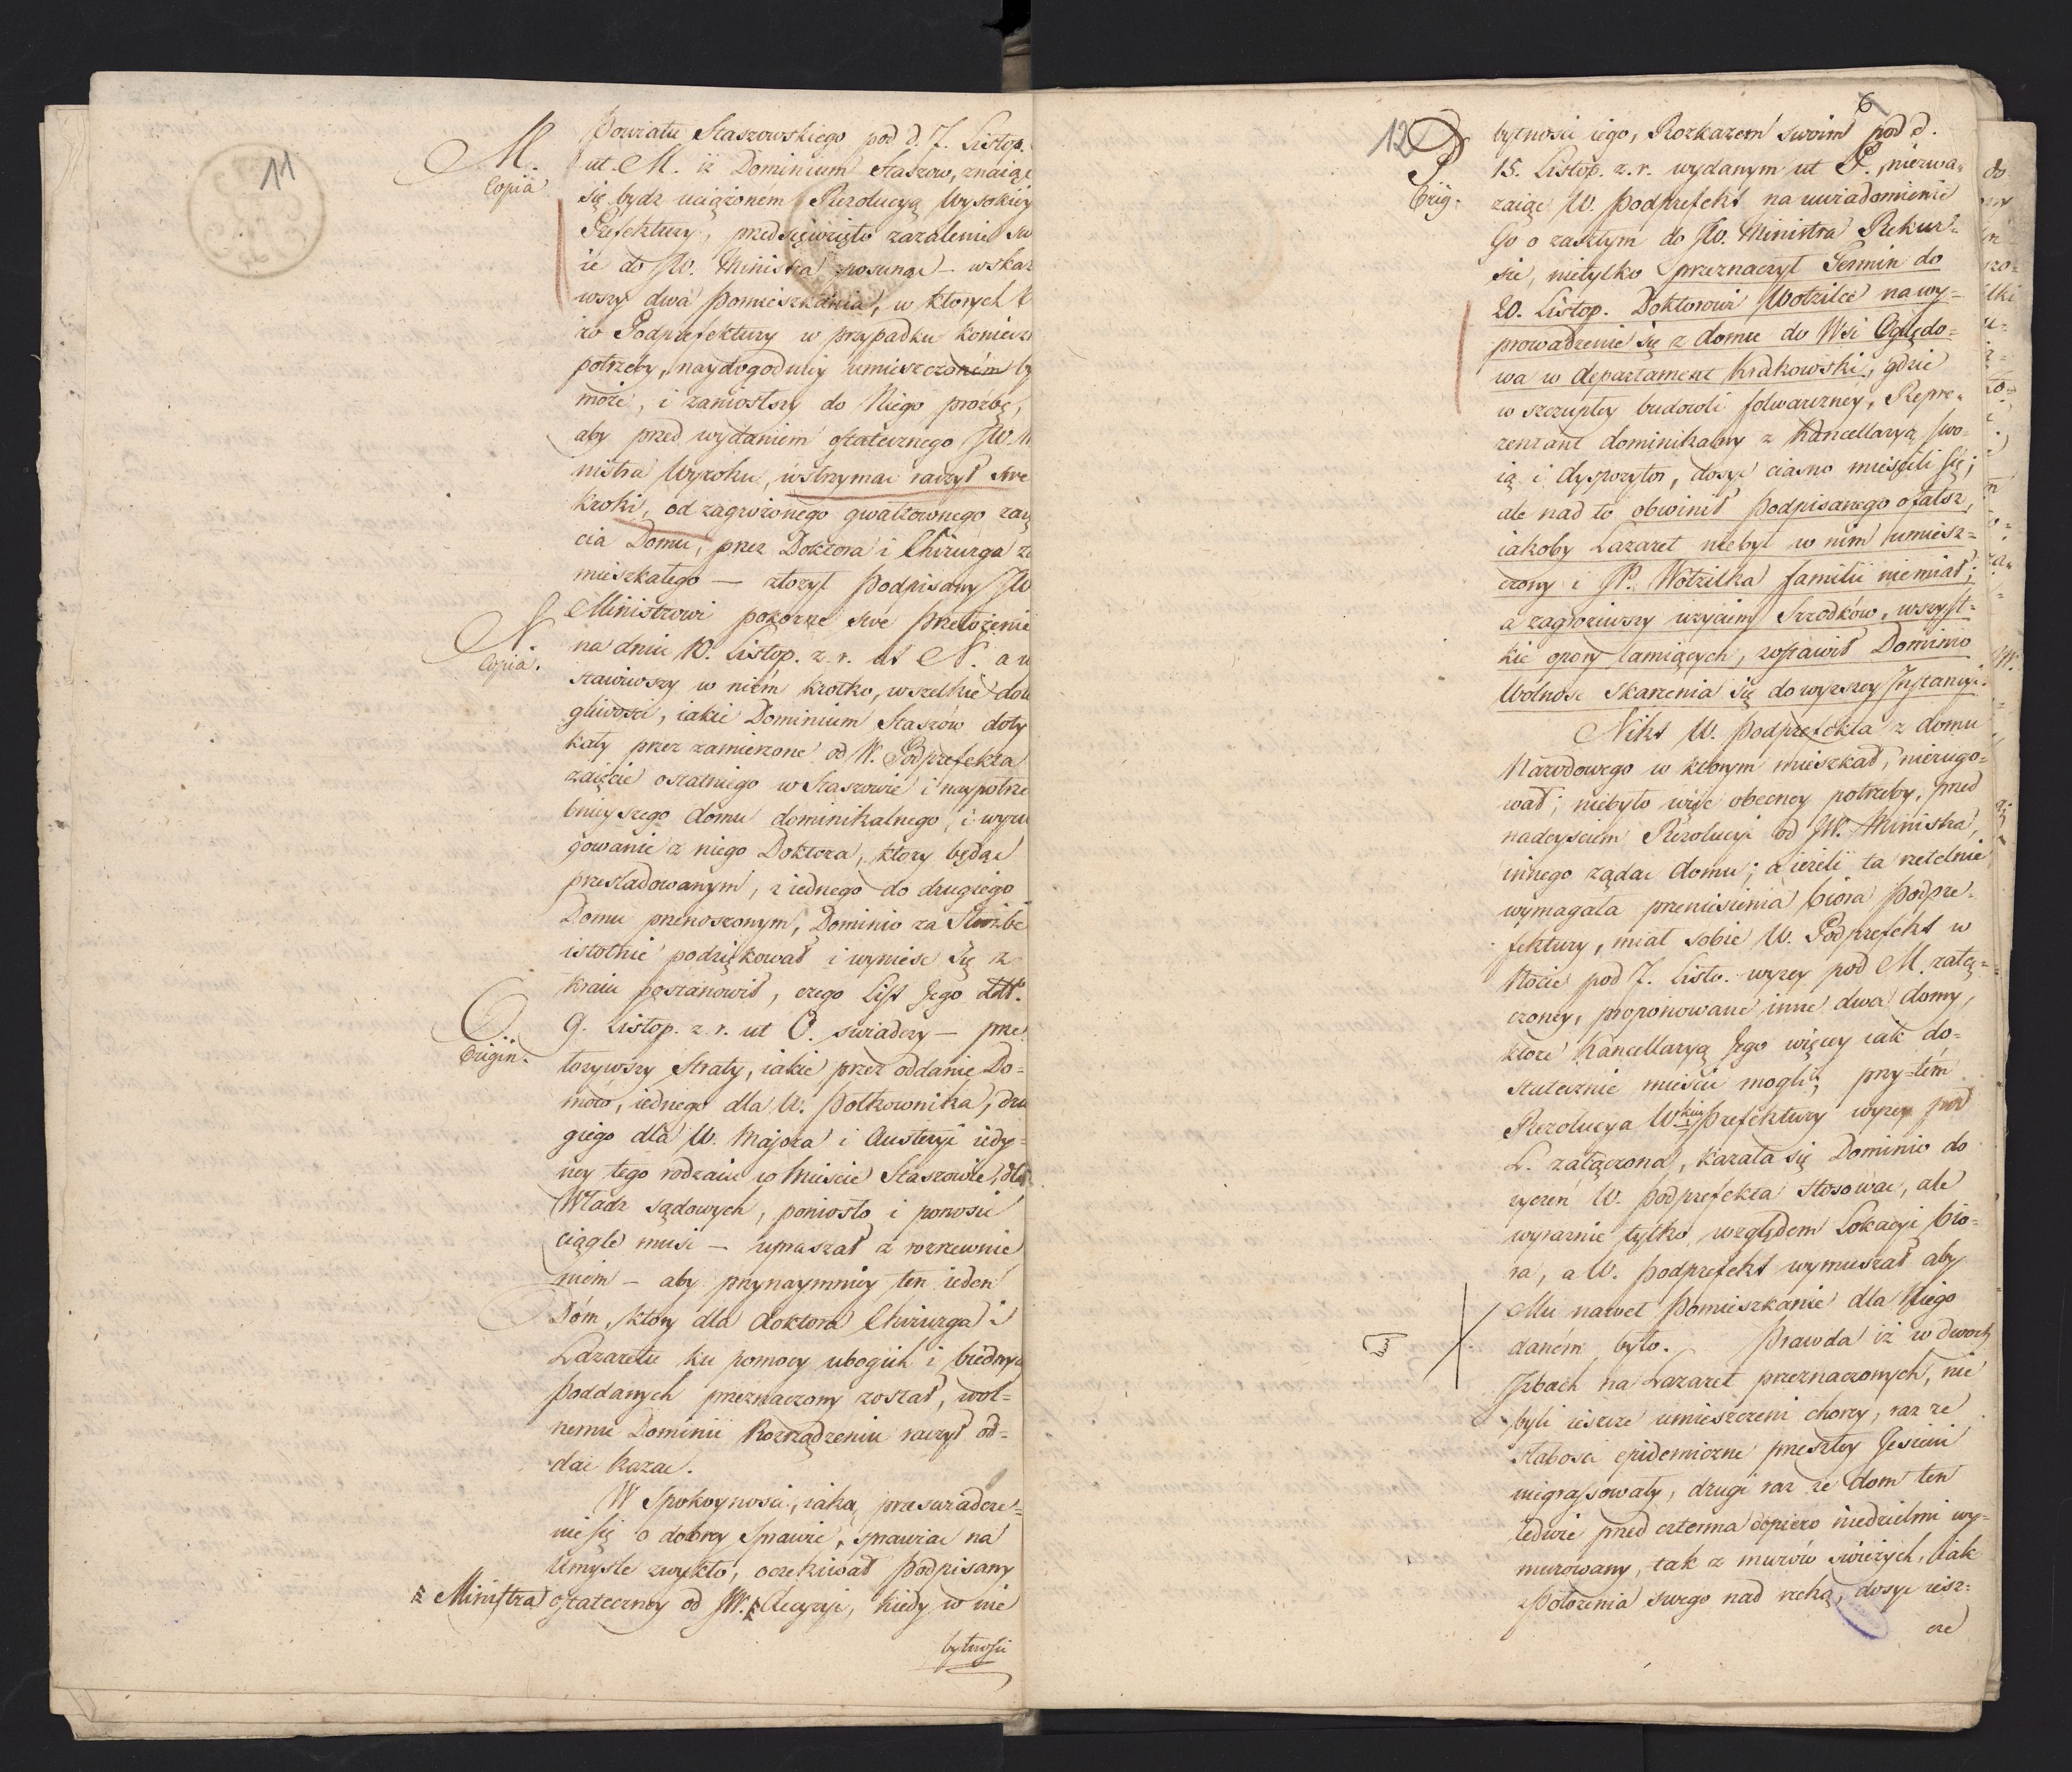 11
M.
Copia
Powiatu Staszowskiego pod d. 7. Listop.
ut. M. iż Dominium Staszow, znaiąc
się bydz uciążonem Rezolucyą Wysokiey
Prefektury, przedsięwzięło zażalenie sw
ie do JW. Ministra zosunąc – wskaz
wszy dwa Pomieszkania, w ktorych B
ro Podprefektury w przypadku koniecz
potrzeby, naydogodniey umieszczoném by
może, i zaniosłszy do Niego prozbę,
aby przed wydaniem ostatecznego JW. M
nistra Wyroku, wstrzymac raczył swe
kroki, od zagrożonego gwałtownego zaię
cia Domu, przez Doktora i Chirurga za
mieszkałego — złożył Podpisany JW
Ministrowi pokorne swe Przełożenie
N.
Copia.
na dniu 10. Listop. z. r. ut N. a u
stawiwszy w niém krotko, wszelkie dole
gliwości, iakie Dominium Staszów doty
kały przez zamierzone od W. Podprefekta
zaięcie ostatniego w Staszowie i naypotrze
bnieyszego domu dominikalnego, i wyru
gowanie z niego Doktora, ktory będąc
prześladowanym, z iednego do drugiego
Domu przenoszonym, Dominio za Służbę
istotnie podziękował i wyniesc się z
kraiu postanowił, czego List Jego dtt.
O.
Origin.
9. Listop. z. r. ut O. swiadczy – prze
łożywszy Straty, iakie przez oddanie Do=
mów, iednego dla W. Półkownika, dru
giego dla W. Majora i Austeryi iedy=
ney tego rodzaiu w Mieście Staszowie, dla
Władz sądowych, poniosło i ponosić
ciągle musi – upraszał z rozrzewnie
niem – aby przynaymniey ten ieden
Dóm, ktory dla doktora Chirurga i
Lazaretu ku pomocy ubogich i biednych
Poddanych przeznaczony został, wol=
nemu Dominii Rozrządzeniu raczył od=
dac kazac.
W Spokoynosci, iaką przeswiadcze=
nie się o dobrey Sprawie, sprawiac na
Umyśle zwykło, oczekiwał Podpisany
Ministra ostateczney od JW. Decyzyi, kiedy w nie
bytności
12
6
P
Orig.
bytności iego, Rozkazem swoim pod d.
15. Listop. z. r. wydanym ut P., niezwa=
zaiąc W. Podprefekt na uwiadomienie
Go o zaszłym do JW. Ministra Rekur=
sie, nietylko przeznaczył Termin do
20. Listop. Doktorowi Wotzilce na wy=
prowadzenie się z domu do Wsi Oględo=
wa w departament Krakowski, gdzie
w szczupłey budowli folwarczney, Repre=
zentant dominikalny z Kancellaryą swo=
ią i dyspozytor, dosyc ciasno mieścili się;
ale nad to obwinił Podpisanego o fałsz,
iakoby Lazaret niebył w nim umiesz=
czony i P. Wotzilka familii niemiał;
a zagroziwszy użyciem Srzodków, wszyst=
kie opory łamiących, zostawił Dominio
Wolnosc skarżenia się do wyższey Instancyi.
Nikt W. Podprefekta z domu
Narodowego w ktorym mieszkał, nierugo=
wał; niebyło więc obecney potrzeby, przed
nadeyściem Rezolucyi od JW. Ministra,
innego żądac domu; a ieżeli ta rzetelnie
wymagała przeniesienia biora Podpre=
fektury, miał sobie W. Podprefekt w
Nocie pod 7. Listo. wyżey pod M. załą=
czoney, proponowane inne dwa domy,
ktore Kancellaryą Jego więcey iak do=
statecznie mieścić mogli; przy-tém
Rezolucya Wkiey Prefektury wyżey pod
L. załączona, kazała się Dominio do
życzeń W. Podprefekta stosować, ale
wyraznie tylko względem Lokacyi bio=
ra, a W. Podprefekt wymuszał aby
Mu nawet Pomieszkanie dla Niego
daném było. Prawda iż w dwoch
Izbach na Lazaret przeznaczonych, nie
byli ieszcze umieszczeni chorzy, raz ze
słabosci epidemiczne przeszłey Jesieni
niegrassowały, drugi raz ze dom ten
ledwie przed czterma dopiero niedzielmi wy=
murowany, tak z murów swieżych, iak
z Położenia swego nad rzeką, dosyc iesz=
cze